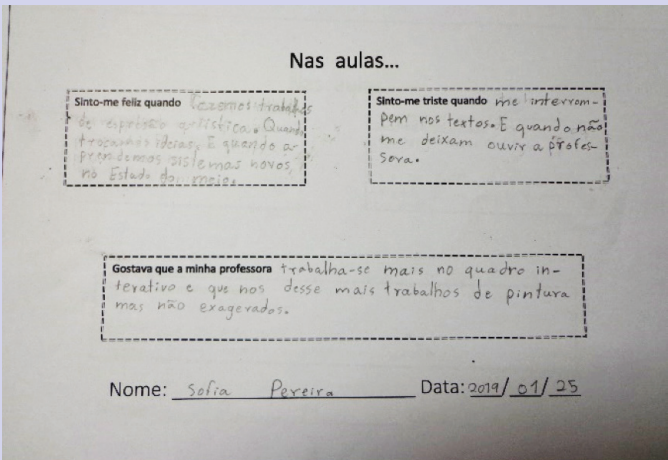 Nas aulas...
Sinto-me feliz quando fazemos trabalhos
de expressão artística. Quando
trocamos ideias. E quando a-
prendemos sistemas novos
no Estudo do meio.
Sinto-me triste quando me interrom-
pem nos textos. E quando não
me deixam ouvir a profes-
sora.
Gostava que a minha professora trabalha-se mais no quadro in-
terativo e que nos desse mais trabalhos de pintura
mas não exagerados.
Nome: Sofia Pereira Data: 2019/01/25